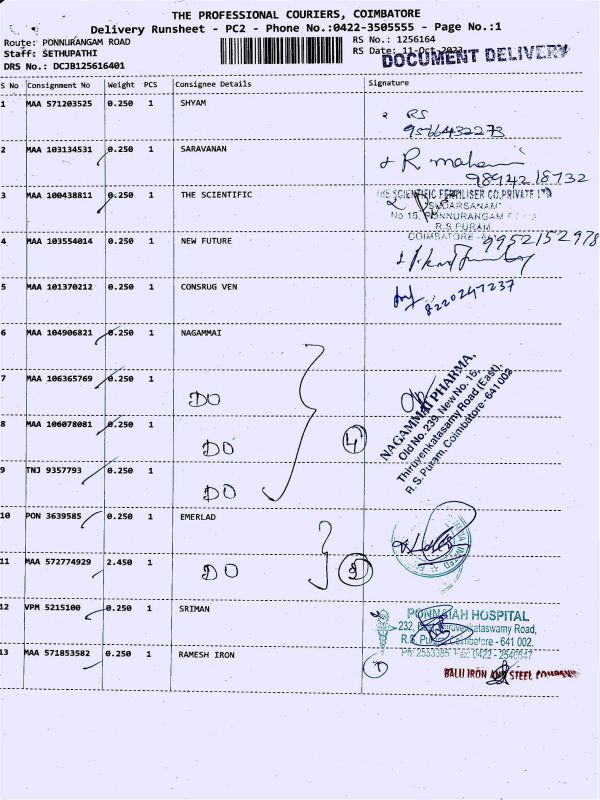 THE PROFESSIONAL COURIERS, COIMBATORE
Delivery Runsheet - PC2 - Phone No.:0422-3505555 - Page No.:1
Route: PONNURANGAM ROAD
Staff: SETHUPATHI
DRS No.: DCJB125616401
RS No.: 1256164
RS Date: 11-Oct-2023
DOCUMENT DELIVERY
S No Consignment No Weight PCS Consignee Details Signature
1 MAA 571203525 0.250 1 SHYAM
RS
9566432273
2 MAA 103134531 0.250 1 SARAVANAN
R
9894218732
3 MAA 100438811 0.250 1 THE SCIENTIFIC
THE SCIENTIFIC FERTILISER CO.PRIVATE LTD
"SUDARSANAM"
No 15, PONNURANGAM
R.S PURAM
COIMBATORE
4 MAA 103554014 0.250 1 NEW FUTURE
9952152978
5 MAA 101370212 0.250 1 CONSRUG VEN
8220247237
6 MAA 104906821 0.250 1 NAGAMMAI
7 MAA 106365769 0.250 1 DO
8 MAA 106078081 0.250 1 DO
4
9 TNJ 9357793 0.250 1 DO
NAGAMMAI PHARMA,
Old No. 239, New No. 15,
Thiruvenkatasamy Road (East),
R.S. Puram, Coimbatore-641 002
10 PON 3639585 0.250 1 EMERLAD
11 MAA 572774929 2.450 1 DO
2
12 VPM 5215100 0.250 1 SRIMAN
PONNAIAH HOSPITAL
232, Thiruvenkataswamy Road,
R.S. Puram, Coimbatore - 641 002.
Ph: 2533385 Fax: 0422 - 2546647
13 MAA 571853582 0.250 1 RAMESH IRON
BALU IRON AND STEEL COMPANY